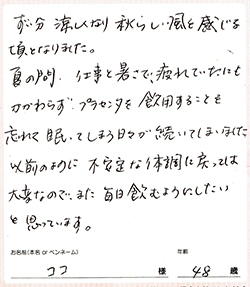 ずい分 涼しくなり 秋らしい風を感じる
頃となりました。
夏の間、仕事と暑さで、疲れていたにも
かかわらず、プラセンタを飲用することも
忘れて 眠ってしまう日々が 続いてしまいました
以前のように 不安定な体調に戻っては
大変なので、また 毎日飲むようにしたい
と思っています。
お名前(本名 or ペンネーム) 年齢
ココ 様 48 歳